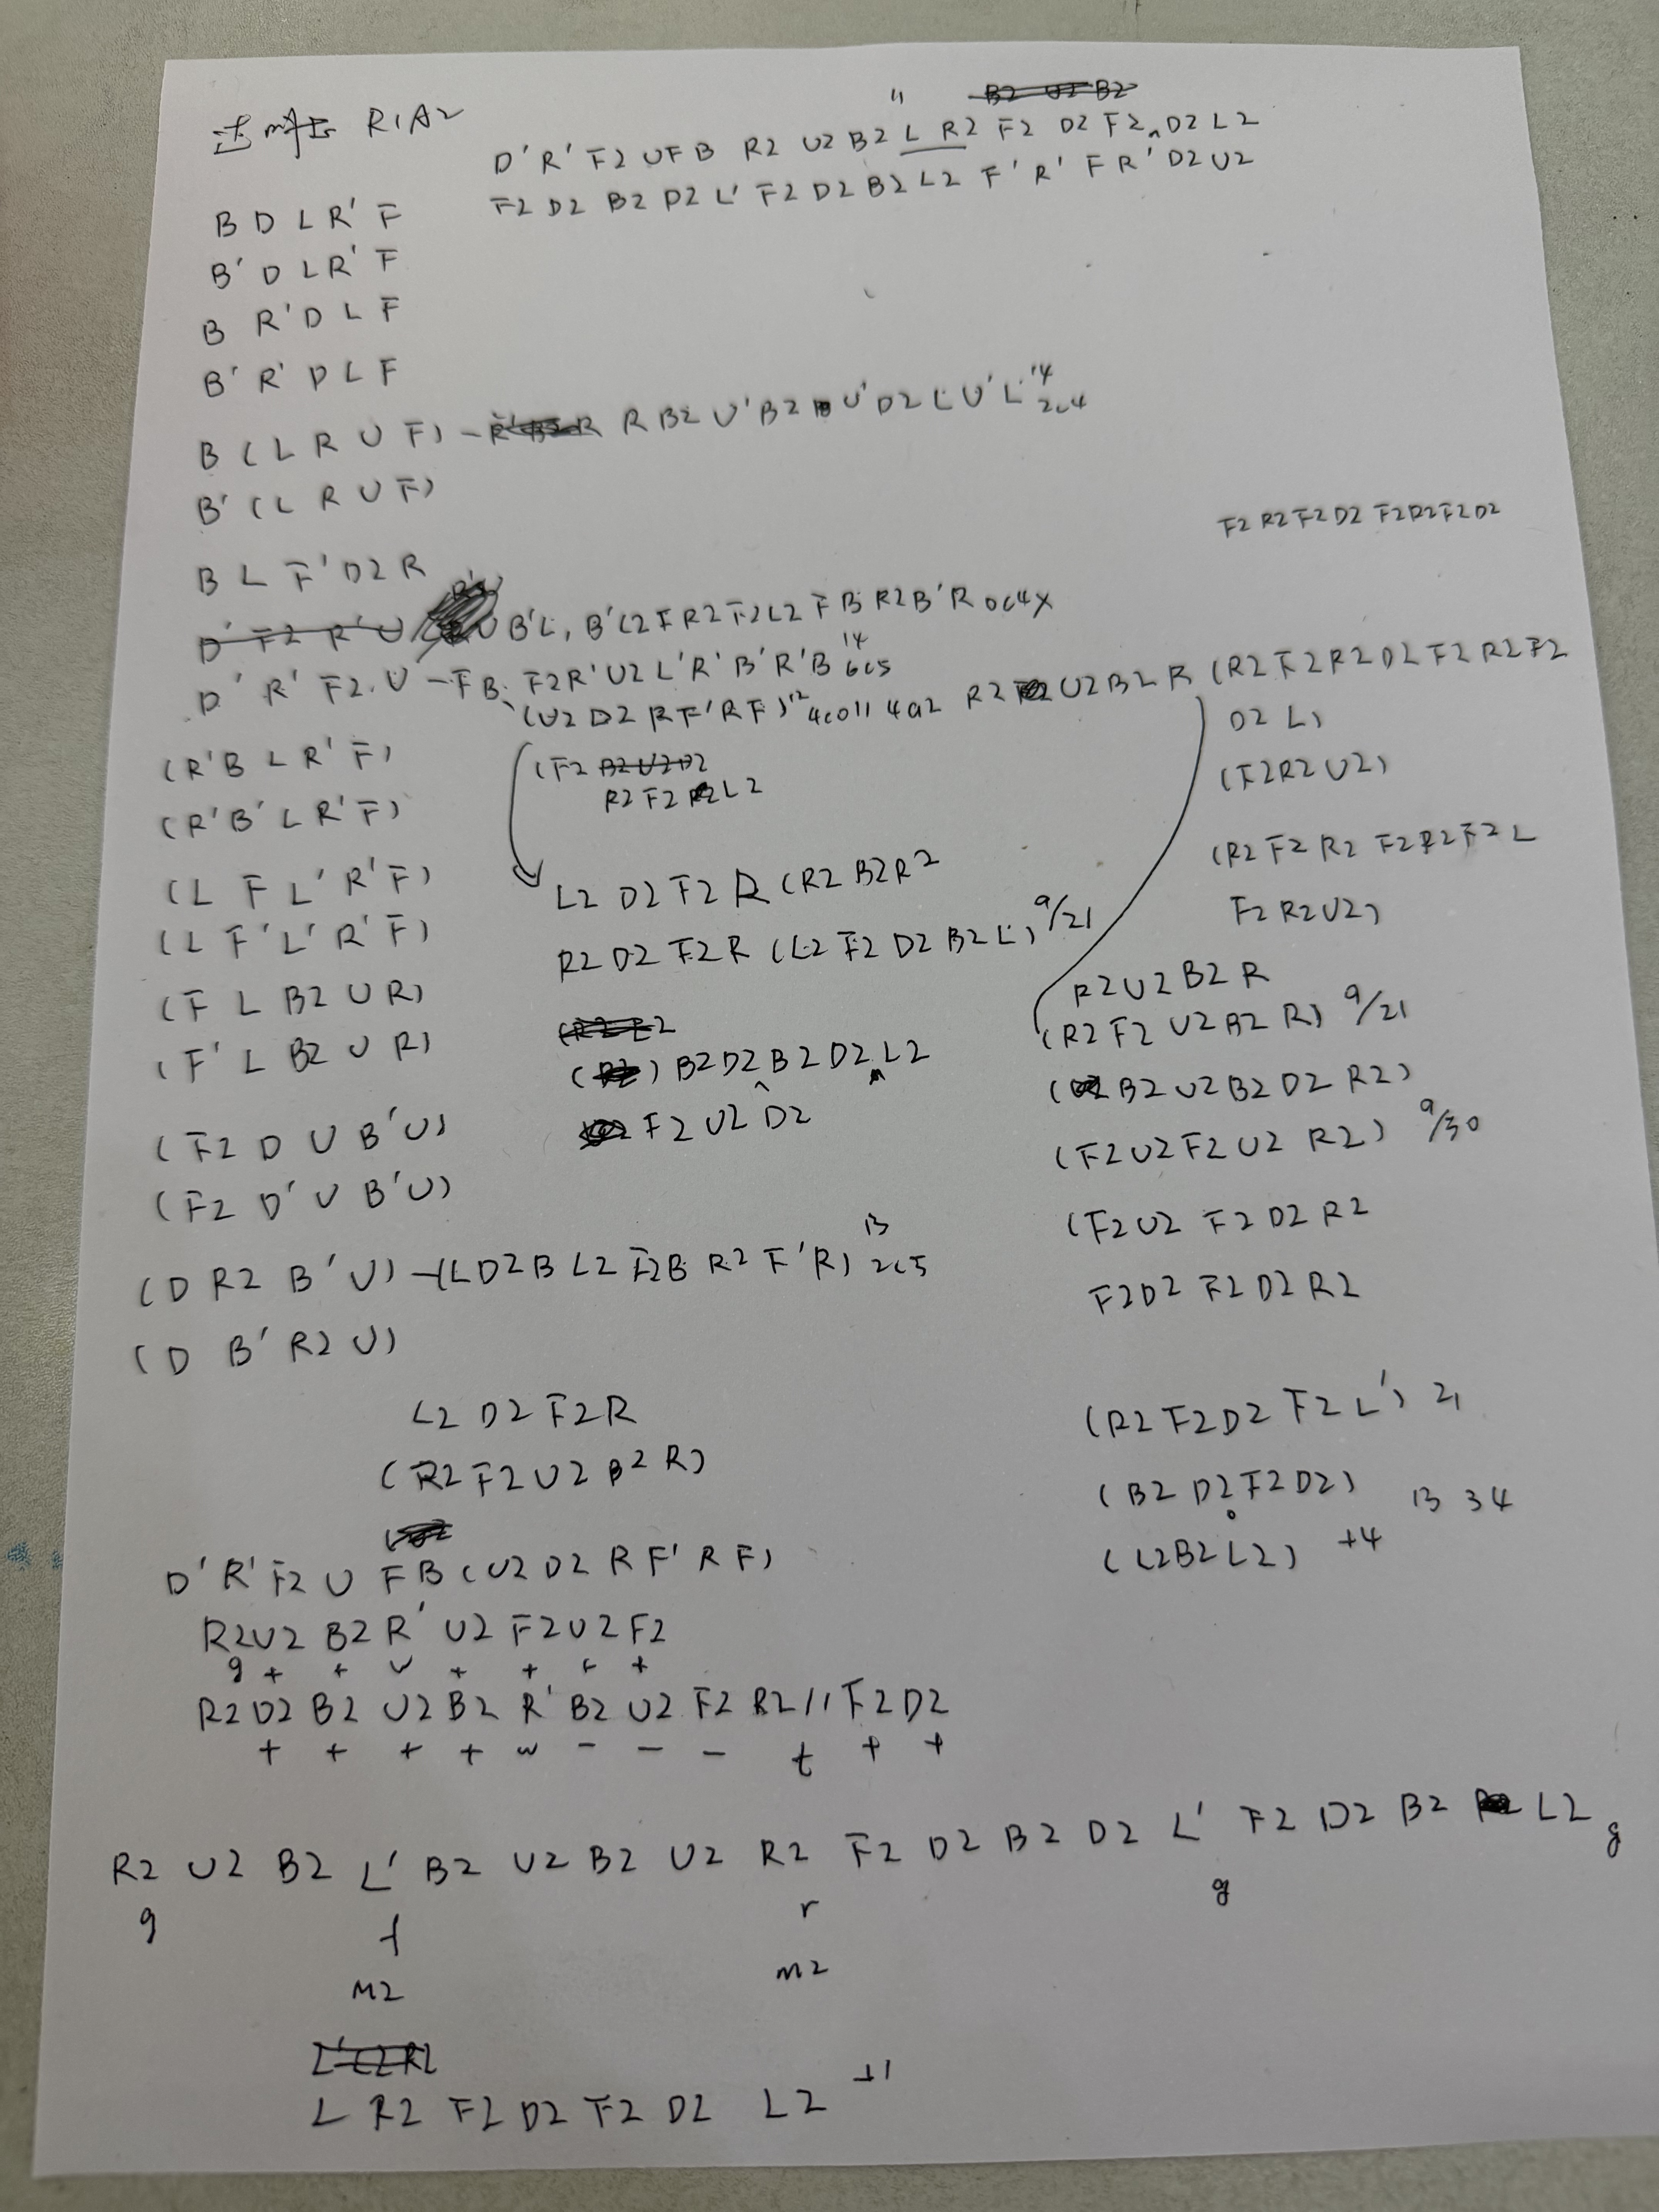 R1A2
B2 U2 B2
11
D' R' F2 U F B R2 U2 B2 L R2 F2 D2 F2 ^ D2 L2
F2 D2 B2 D2 L' F2 D2 B2 L2 F' R' F R' D2 U2
B D L R' F
B' D L R' F
B R' D L F
B' R' D L F
B (L R U F) - R B2 U' B2 U' D2 L U' L 14 2c4
B' (L R U F)
F2 R2 F2 D2 F2 R2 F2 D2
B L F' D2 R
D' F2 R' U B' L, B' L2 F R2 F2 L2 F B R2 B' R 0c4x
D' R' F2. U - F B. F2 R' U2 L' R' B' R' B 14 6c5
(U2 D2 R F' R F) 12 4co11 4a2 R2 U2 B2 R (R2 F2 R2 D2 F2 R2 F2
D2 L)
(F2 R2 U2)
(R2 F2 R2 F2 R2 F2 L
F2 R2 U2)
(F2 B2 U2 D2
R2 F2 L2
(R' B L R' F)
(R' B' L R' F)
(L F L' R' F)
(L F' L' R' F)
(F L B2 U R)
(F' L B2 U R)
(F2 D U B' U)
(F2 D' U B' U)
(D R2 B' U) - (L D2 B L2 F2 B R2 F' R) 13 2c5
(D B' R2 U)
L2 D2 F2 R (R2 B2 R2
R2 D2 F2 R (L2 F2 D2 B2 L) 9/21
( ) B2 D2 ^ B2 D2 ^ L2
F2 U2 D2
R2 U2 B2 R
(R2 F2 U2 B2 R) 9/21
( B2 U2 B2 D2 R2)
(F2 U2 F2 U2 R2) 9/30
(F2 U2 F2 D2 R2
F2 D2 F2 D2 R2
L2 D2 F2 R
(R2 F2 U2 B2 R)
(R2 F2 D2 F2 L') 21
(B2 D2 F2 D2) 13 34
(L2 B2 L2) +4
D' R' F2 U F B (U2 D2 R F' R F)
R2 U2 B2 R' U2 F2 U2 F2
g + + w + + + +
R2 D2 B2 U2 B2 R' B2 U2 F2 R2 // F2 D2
+ + + + w - - - t + +
R2 U2 B2 L' B2 U2 B2 U2 R2 F2 D2 B2 D2 L' F2 D2 B2 L2 g
g f r g
M2 m2
L R2 F2 D2 F2 D2 L2 +1